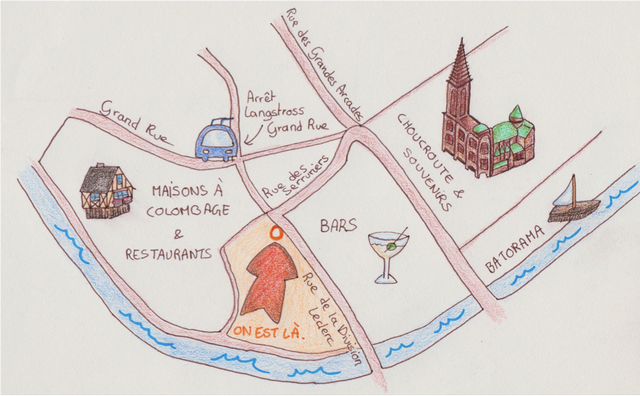 Rue des Grandes Arcades
Grand Rue
Arrêt
Langstross
Grand Rue
CHOUCROUTE &
SOUVENIRS
Rue des
Serruriers
MAISONS À
COLOMBAGE
&
RESTAURANTS
BARS
BATORAMA
Rue de la Division
Leclerc
ON EST LÀ.